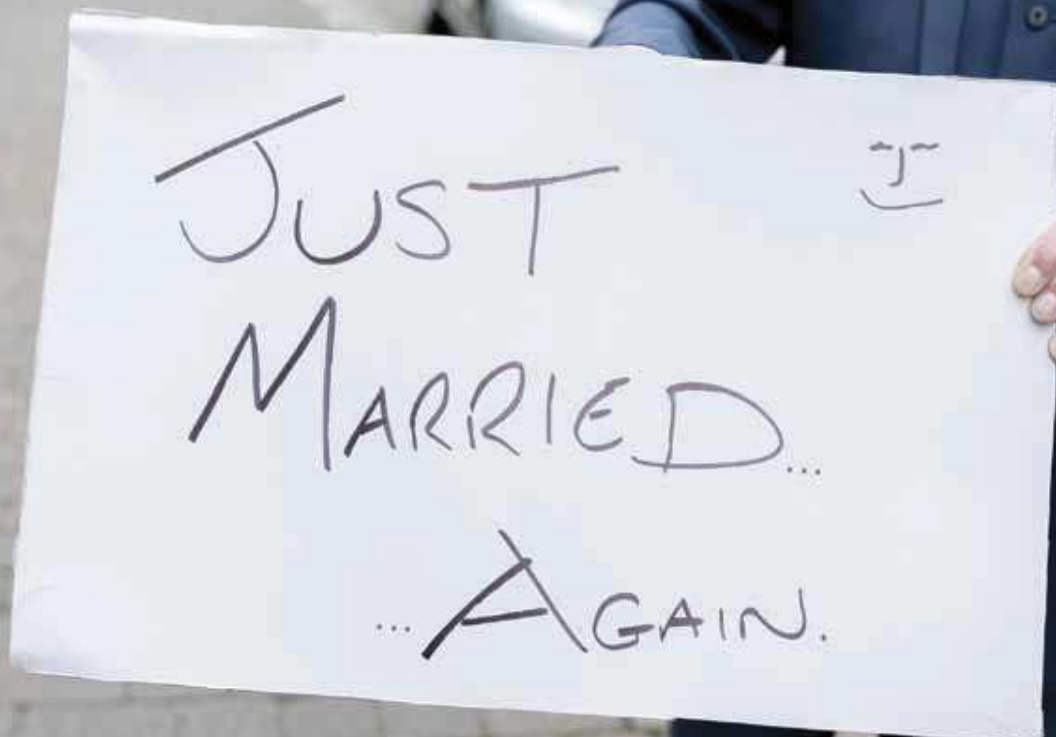 JUST
MARRIED...
...AGAIN.